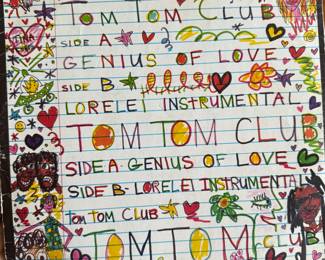 TOM TOM CLUB
SIDE A
GENIUS OF LOVE
SIDE B
LORELEI INSTRUMENTAL
TOM TOM CLUB
SIDE A GENIUS OF LOVE
SIDE B- LORELEI INSTRUMENTAL
tom TOM CLUB
TOM TOM CLUB